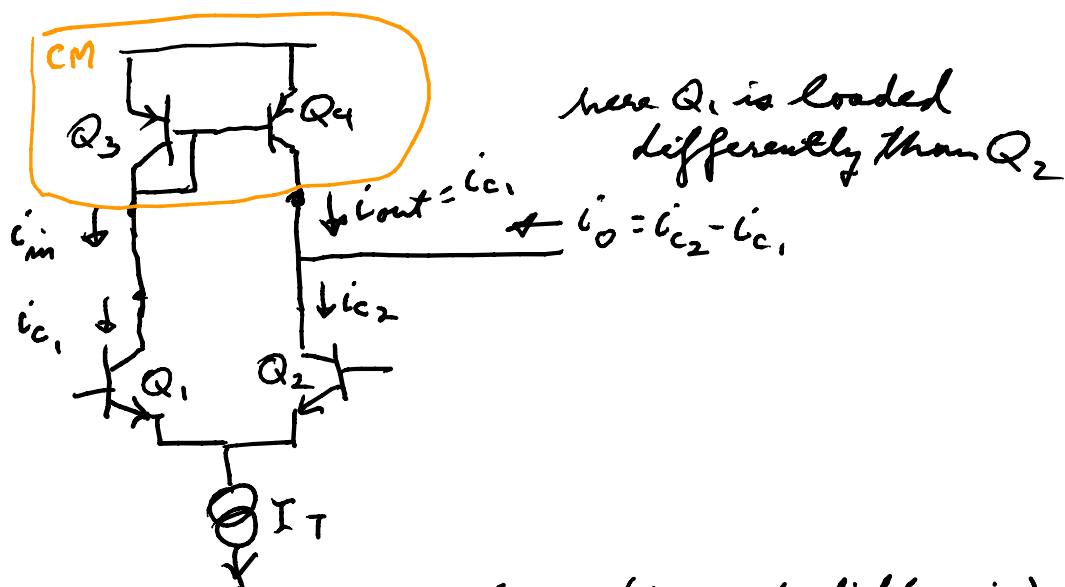 CM
Q3
Q4
here Q1 is loaded
differently than Q2
iin
iout = ic1
io = ic2 - ic1
ic1
ic2
Q1
Q2
IT